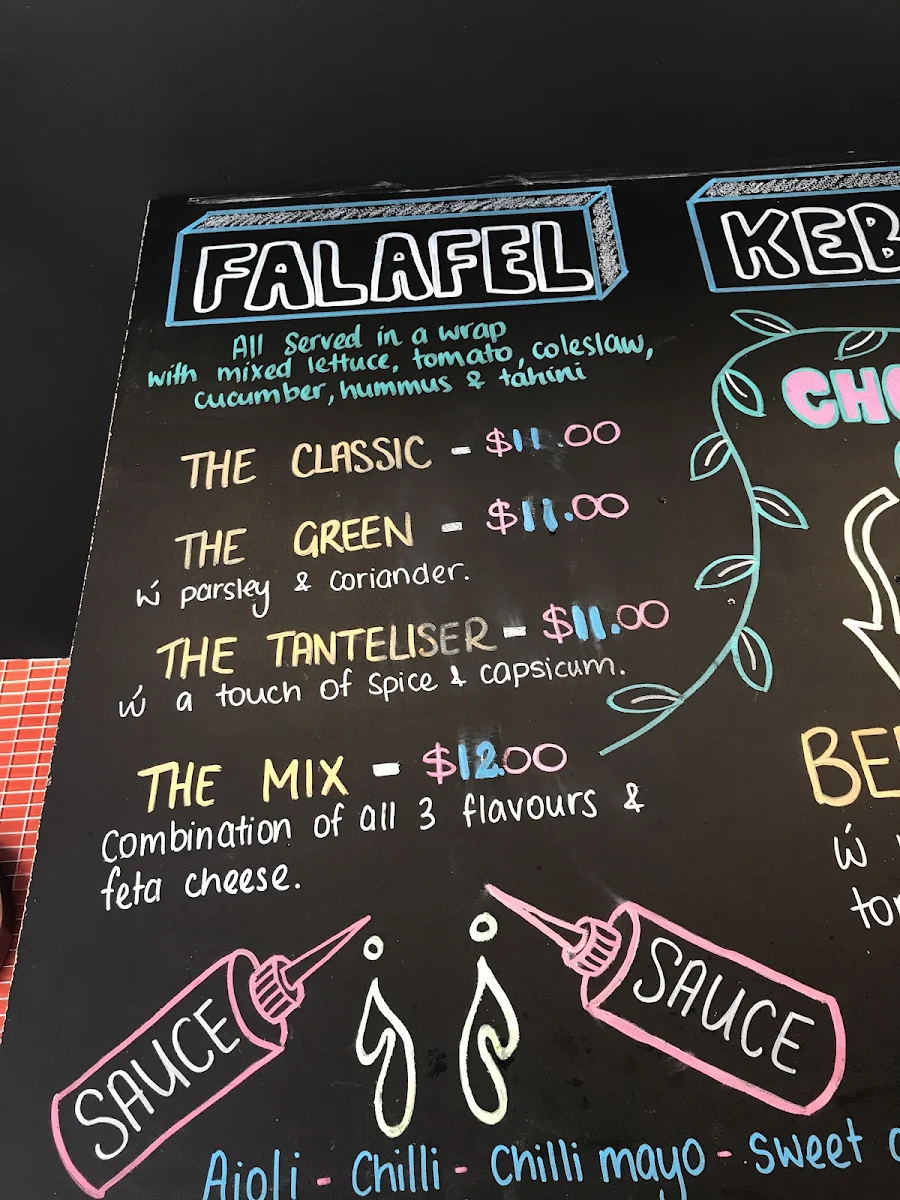 FALAFEL
All Served in a wrap
with mixed lettuce, tomato, coleslaw,
cucumber, hummus & tahini
THE CLASSIC - $11.00
THE GREEN - $11.00
ẃ parsley & coriander.
THE TANTELISER - $11.00
ẃ a touch of spice & capsicum.
THE MIX - $12.00
Combination of all 3 flavours &
feta cheese.
SAUCE
SAUCE
Aioli - Chilli - Chilli mayo - sweet
KEB
CHO
BE
ẃ